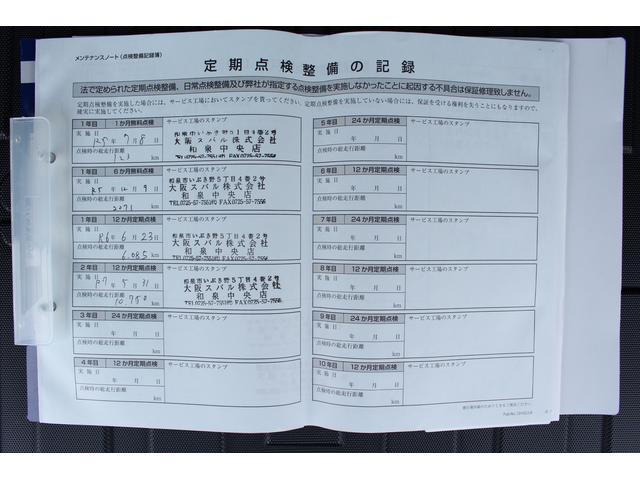 メンテナンスノート（点検整備記録簿）
定期点検整備の記録
法で定められた定期点検整備、日常点検整備及び弊社が指定する点検整備を実施しなかったことに起因する不具合は保証修理致しません。
定期点検整備を実施した場合には、サービス工場においてスタンプを貰ってください。定期点検整備を実施していない場合には、保証を受ける権利を失うことにもなりますので、
確実に実施してください。
1年目 1か月無料点検 サービス工場のスタンプ
実施日
R5年7月8日
点検時の総走行距離
km
和泉市いぶき野5丁目4番2号
大阪スバル株式会社
和泉中央店
1年目 6か月無料点検 サービス工場のスタンプ
実施日
R5年12月9日
点検時の総走行距離
2071 km
和泉市いぶき野5丁目4番2号
大阪スバル株式会社
和泉中央店
1年目 12か月定期点検 サービス工場のスタンプ
実施日
R6年6月23日
点検時の総走行距離
6,085 km
和泉市いぶき野5丁目4番2号
大阪スバル株式会社
和泉中央店
2年目 12か月定期点検 サービス工場のスタンプ
実施日
R7年5月31日
点検時の総走行距離
10750 km
和泉市いぶき野5丁目4番2号
大阪スバル株式会社
和泉中央店
3年目 24か月定期点検 サービス工場のスタンプ
実施日
年 月 日
点検時の総走行距離
km
4年目 12か月定期点検 サービス工場のスタンプ
実施日
年 月 日
点検時の総走行距離
km
5年目 24か月定期点検 サービス工場のスタンプ
実施日
年 月 日
点検時の総走行距離
km
6年目 12か月定期点検 サービス工場のスタンプ
実施日
年 月 日
点検時の総走行距離
km
7年目 24か月定期点検 サービス工場のスタンプ
実施日
年 月 日
点検時の総走行距離
km
8年目 12か月定期点検 サービス工場のスタンプ
実施日
年 月 日
点検時の総走行距離
km
9年目 24か月定期点検 サービス工場のスタンプ
実施日
年 月 日
点検時の総走行距離
km
10年目 12か月定期点検 サービス工場のスタンプ
実施日
年 月 日
点検時の総走行距離
km